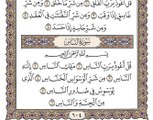 قُلْ أَعُوذُ بِرَبِّ ٱلْفَلَقِ ۝ مِن شَرِّ مَا خَلَقَ ۝ وَمِن شَرِّ
غَاسِقٍ إِذَا وَقَبَ ۝ وَمِن شَرِّ ٱلنَّفَّـٰثَـٰتِ فِى ٱلْعُقَدِ ۝
وَمِن شَرِّ حَاسِدٍ إِذَا حَسَدَ ۝
سُورَةُ النَّاسِ
بِسْمِ ٱللَّهِ ٱلرَّحْمَـٰنِ ٱلرَّحِيمِ
قُلْ أَعُوذُ بِرَبِّ ٱلنَّاسِ ۝ مَلِكِ ٱلنَّاسِ ۝
إِلَـٰهِ ٱلنَّاسِ ۝ مِن شَرِّ ٱلْوَسْوَاسِ ٱلْخَنَّاسِ ۝ ٱلَّذِى
يُوَسْوِسُ فِى صُدُورِ ٱلنَّاسِ ۝
مِنَ ٱلْجِنَّةِ وَٱلنَّاسِ ۝
٦٠٤